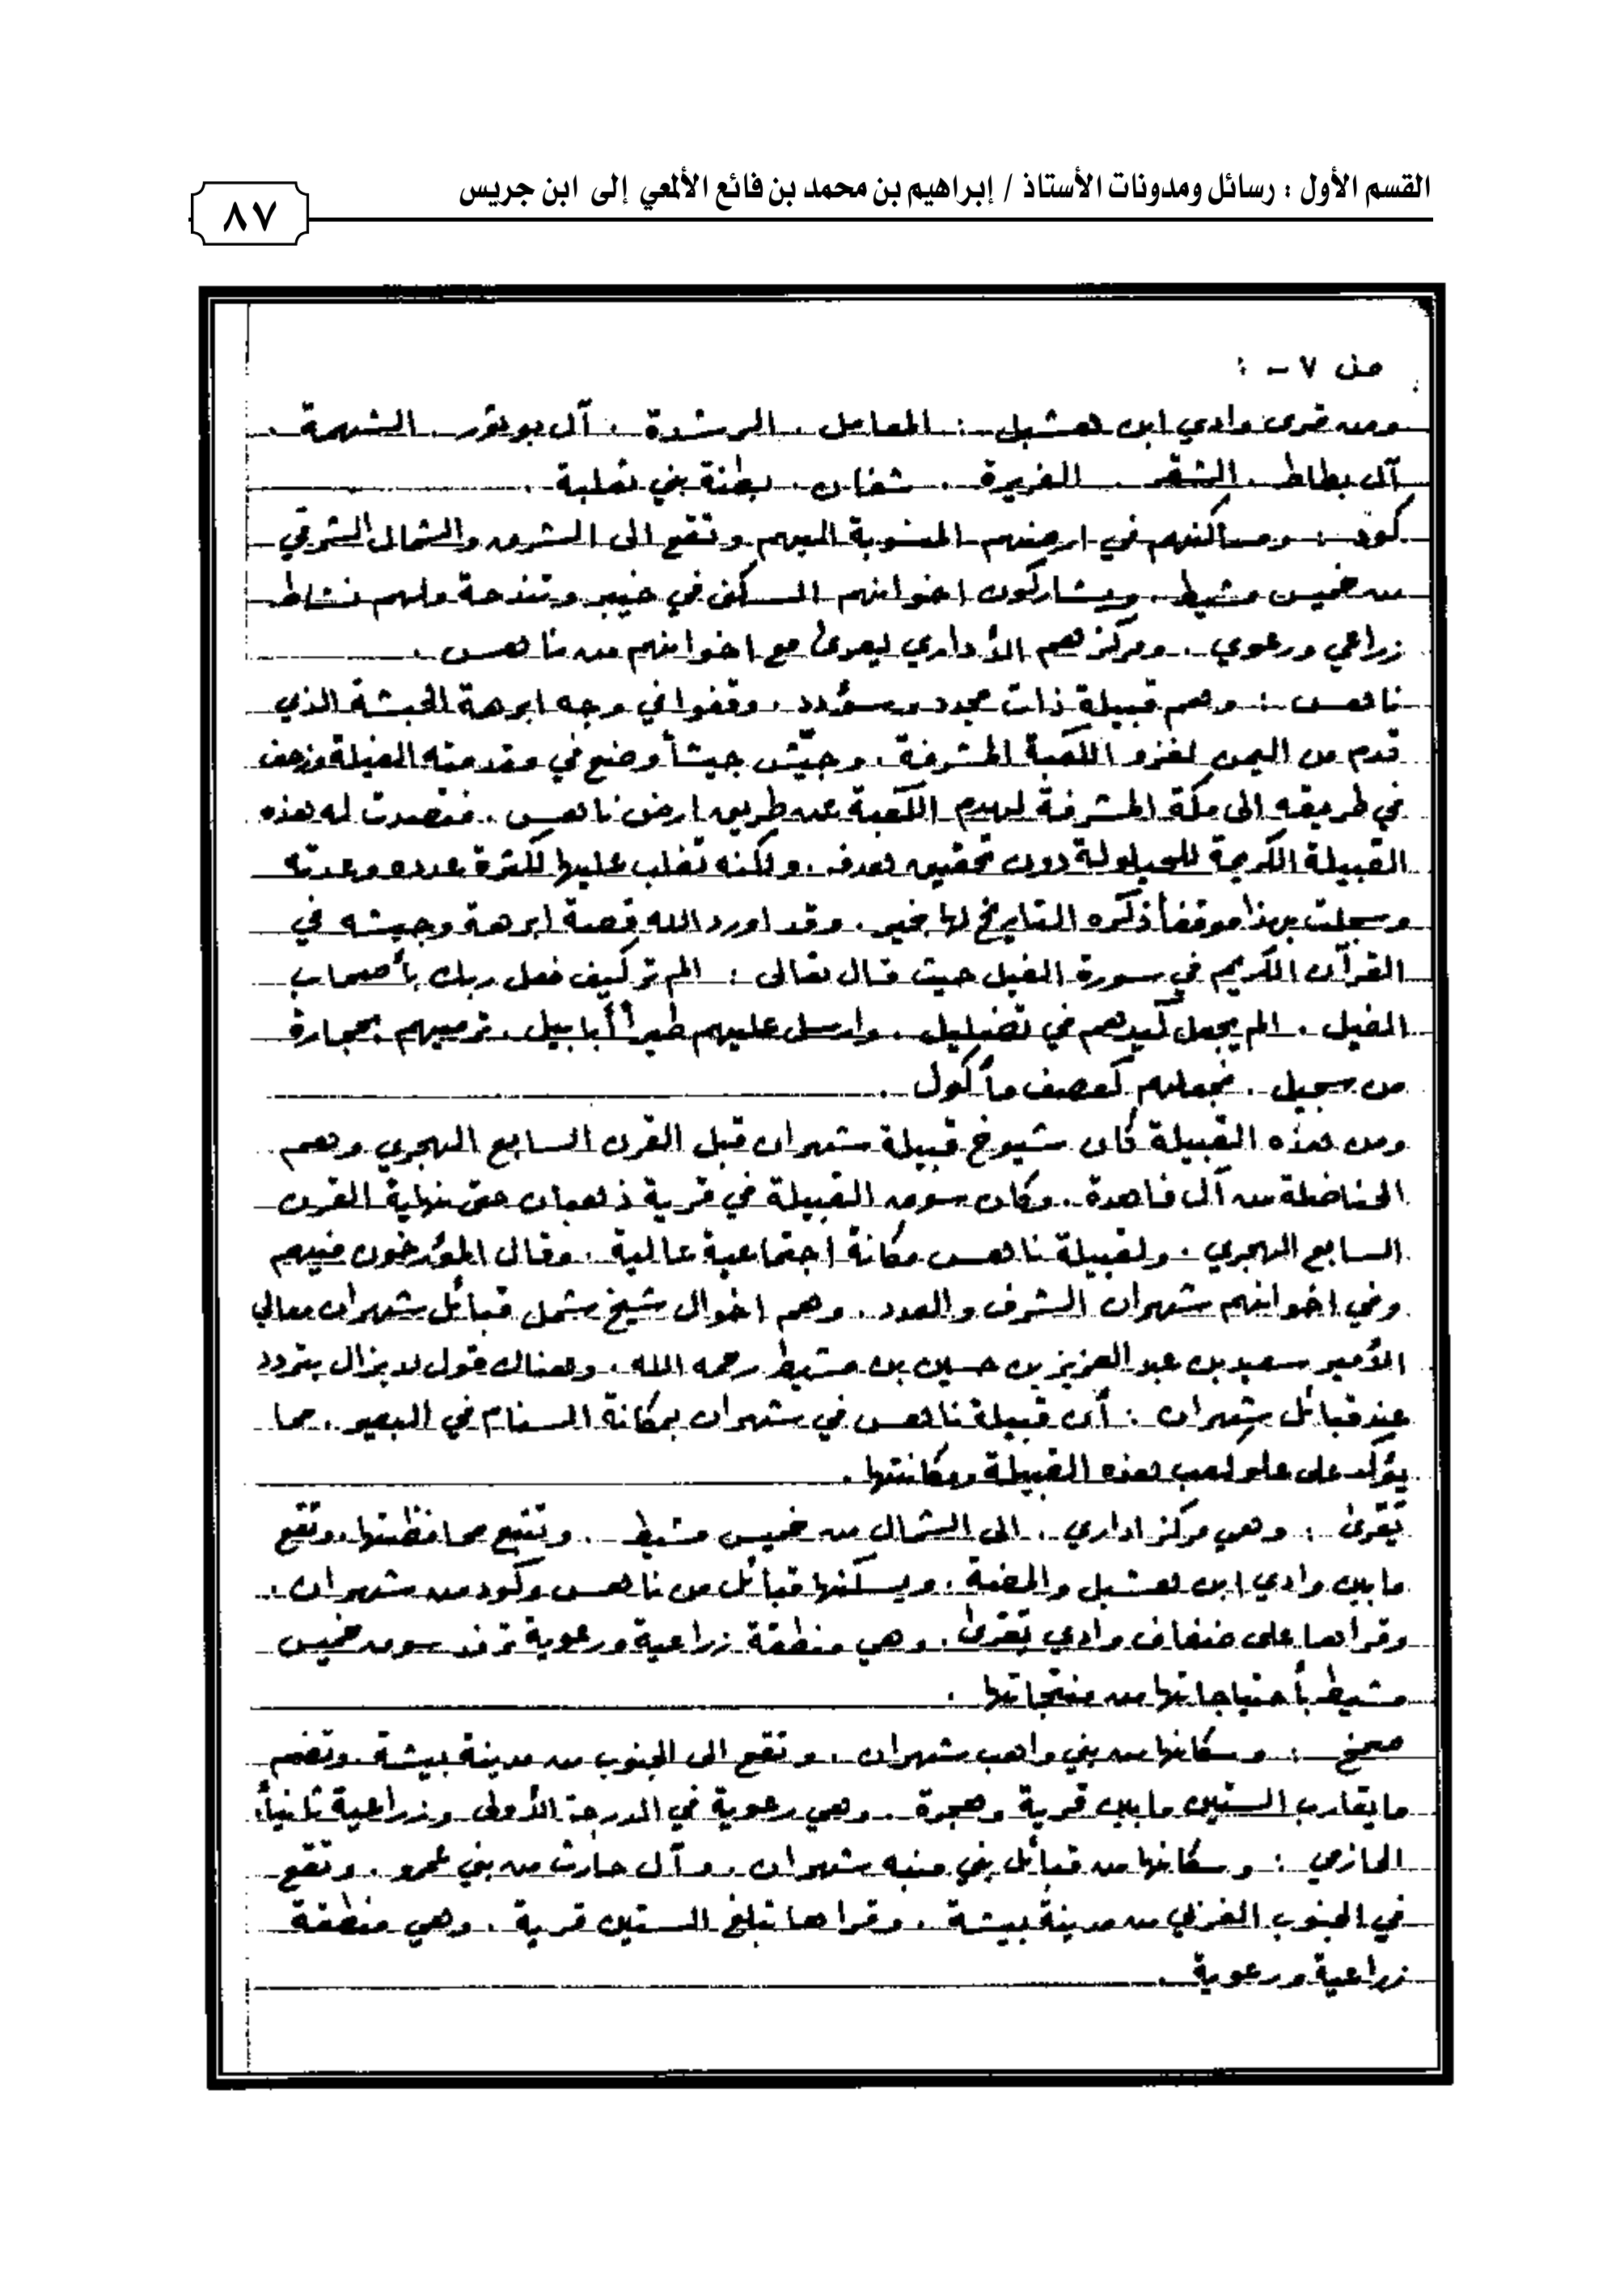 القسم الأول : رسائل ومدونات الأستاذ / إبراهيم بن محمد بن فائع الألمعي إلى ابن جريس
٨٧
ص ٧ - :
ومن قرى وادي ابن هشبل : المعامل . الرشدة . آل بوثور . الشهمة .
آل بطاط . الشقر . الغريرة . شغان . بطنة بني ثعلبة .
كود : ومساكنهم في ارضهم المنسوبة اليهم وتقع الى الشرق والشمال الشرقي
من خميس مشيط . ويشاركون اخوانهم السكن في خيبر وتندحة ولهم نشاط
زراعي ورعوي . ومركزهم الأداري يعرى مع اخوانهم من ناهس .
ناهس : وهم قبيلة ذات مجد وسؤدد . وقفوا في وجه ابرهة الحبشة الذي
قدم من اليمن لغزو الكعبة المشرفة . وجيّش جيشاً وضع في مقدمته الفيلة وزحف
في طريقه الى مكة المشرفة ليهدم الكعبة عن طريق ارض ناهس . فتصدت له هذه
القبيلة الكريمة للحيلولة دون تحقيق هدفه . ولكنه تغلب عليها لكثرة عدده وعدته
وسجلت بهذا موقفاً ذكره التاريخ لها بخير . وقد اورد الله قصة ابرهة وجيشه في
القرآن الكريم في سورة الفيل حيث قال تعالى : الم تر كيف فعل ربك بأصحاب
الفيل . الم يجعل كيدهم في تضليل . وارسل عليهم طيراً أبابيل . ترميهم بحجارة
من سجيل . فجعلهم كعصف مأكول .
ومن هذه القبيلة كان شيوخ قبيلة شهران قبل القرن السابع الهجري وهم
الحناضلة من آل فاهدة . وكان سوق القبيلة في قرية ذهبان حتى نهاية القرن
السابع الهجري . ولقبيلة ناهس مكانة اجتماعية عالية . وقال المؤرخون فيهم
وفي اخوانهم شهران الشرف والعدد . وهم اخوال شيخ شمل قبائل شهران معالي
الأمير سعيد بن عبد العزيز بن حسين بن مشيط رحمه الله . وهناك قول لا يزال يتردد
عند قبائل شهران : أن قبيلة ناهس في شهران بمكانة السنام في البعير . مما
يؤكد على علو كعب هذه القبيلة ومكانتها .
يَعْرى : وهي مركز اداري . الى الشمال من خميس مشيط . وتتبع محافظتها . وتقع
ما بين وادي ابن هشبل والمضة . ويسكنها قبائل من ناهس وكود من شهران .
وقراها على ضفاف وادي يعرى . وهي منطقة زراعية ورعوية ترفد سوق خميس
مشيط بأحتياجاتها من منتجاتها .
صمخ : وسكانها من بني واهب شهران . وتقع الى الجنوب من مدينة بيشة . وتضم
ما يقارب الستين ما بين قرية وهجرة . وهي رعوية في الدرجة الأولى وزراعية ثانياً .
الحازمي : وسكانها من قبائل بني منبه شهران . وآل حارث من بني عمرو . وتقع
في الجنوب الغربي من مدينة بيشة . وقراها تبلغ الستين قرية . وهي منطقة
زراعية ورعوية .